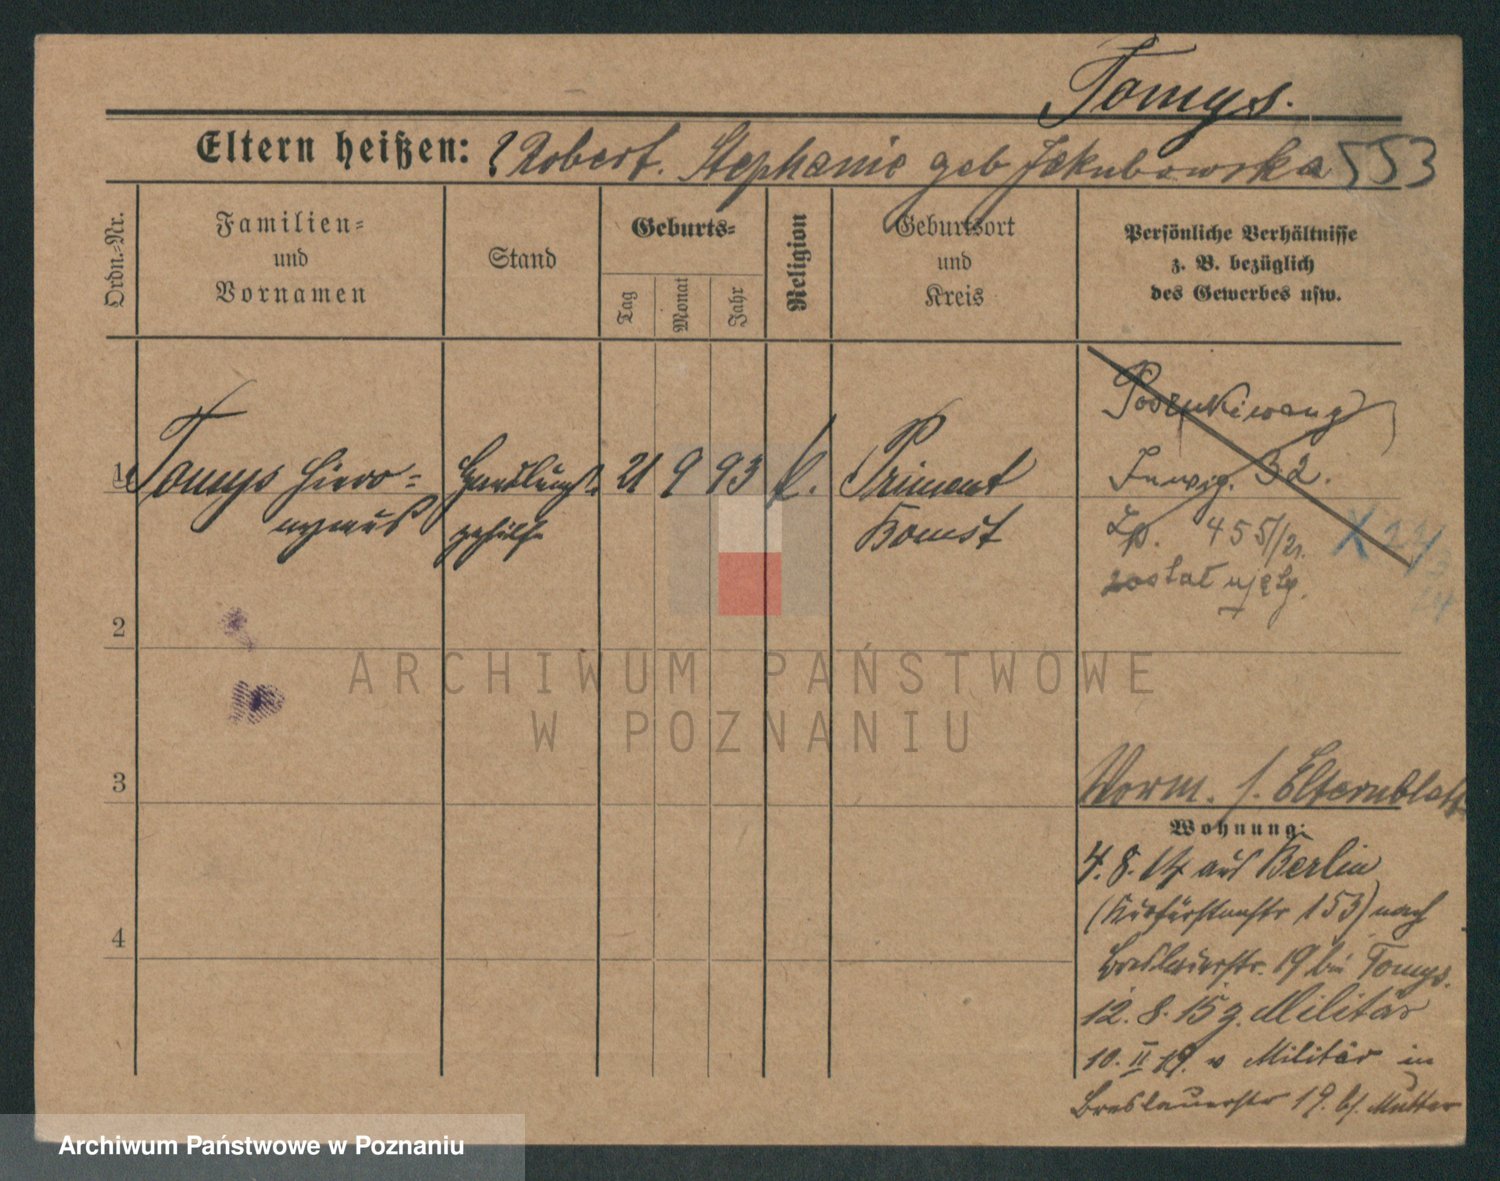 Tomys.
Eltern heißen: Robert. Stephanie geb Jakubowska 553
Ordn.-Nr.
Familien-
und
Vornamen
Stand
Geburts-
Tag
Monat
Jahr
Religion
Geburtsort
und
Kreis
Persönliche Verhältnisse
z. B. bezüglich
des Gewerbes usw.
Poszukiwany
32.
1 Tomys Hiero- Handlungs 21 9 93 k. Priment
nymus gehilfe Bomst
Lp. 455/21.
został ujęty.
2
ARCHIWUM PAŃSTWOWE
W POZNANIU
3
Vorm. s. Elternblatt
Wohnung:
4. 8. 14 aus Berlin
(Kurfürstenstr 153) nach
4
Breslauerstr. 19 bei Tomys.
12. 8. 15 z. Militär
10. II 19. v Militär in
Breslauerstr 19. b/. Mutter
Archiwum Państwowe w Poznaniu